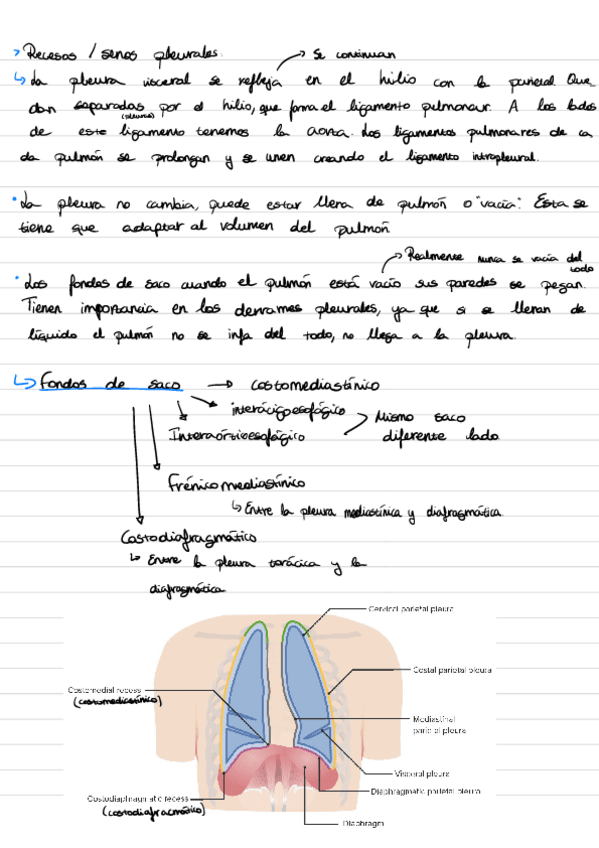 > Recesos / senos pleurales.
Se continuan
↳ La pleura visceral se refleja en el hilio con la parietal. Que
dan separadas por el hilio, que forma el ligamento pulmonar. A los lados
(pleuras)
de este ligamento tenemos la aorta. Los ligamentos pulmonares de ca
da pulmón se prolongan y se unen creando el ligamento intrapleural.
• La pleura no cambia, puede estar llena de pulmón o "vacía". Esta se
tiene que adaptar al volumen del pulmón
Realmente nunca se vacía del
todo
• Los fondos de saco cuando el pulmón está vacío sus paredes se pegan.
Tienen importancia en los derrames pleurales, ya que si se llenan de
líquido el pulmón no se infa del todo, no llega a la pleura.
↳ Fondos de saco → costomediastínico
interácigoesofágico
Interaórticoesofágico
Mismo saco
diferente lado
Frénicomediastínico
↳ Entre la pleura mediastínica y diafragmática
Costodiafragmático
↳ Entre la pleura torácica y la
diafragmática
Cervical parietal pleura
Costal parietal pleura
Costomedial recess
(costomediastínico)
Mediastinal
parietal pleura
Visceral pleura
Diaphragmatic parietal pleura
Costodiaphragmatic recess
(costodiafragmático)
Diaphragm